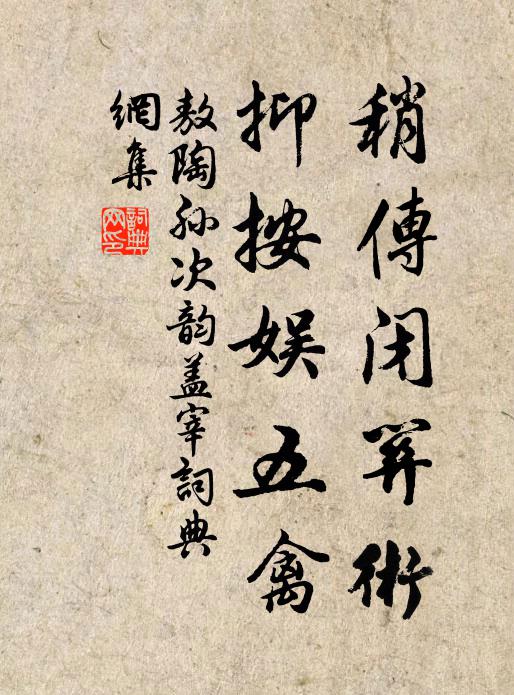 稍傳閉筭術
抑按娱五禽
敖陶孙次韵盖宰詞典
網集
詞典網印